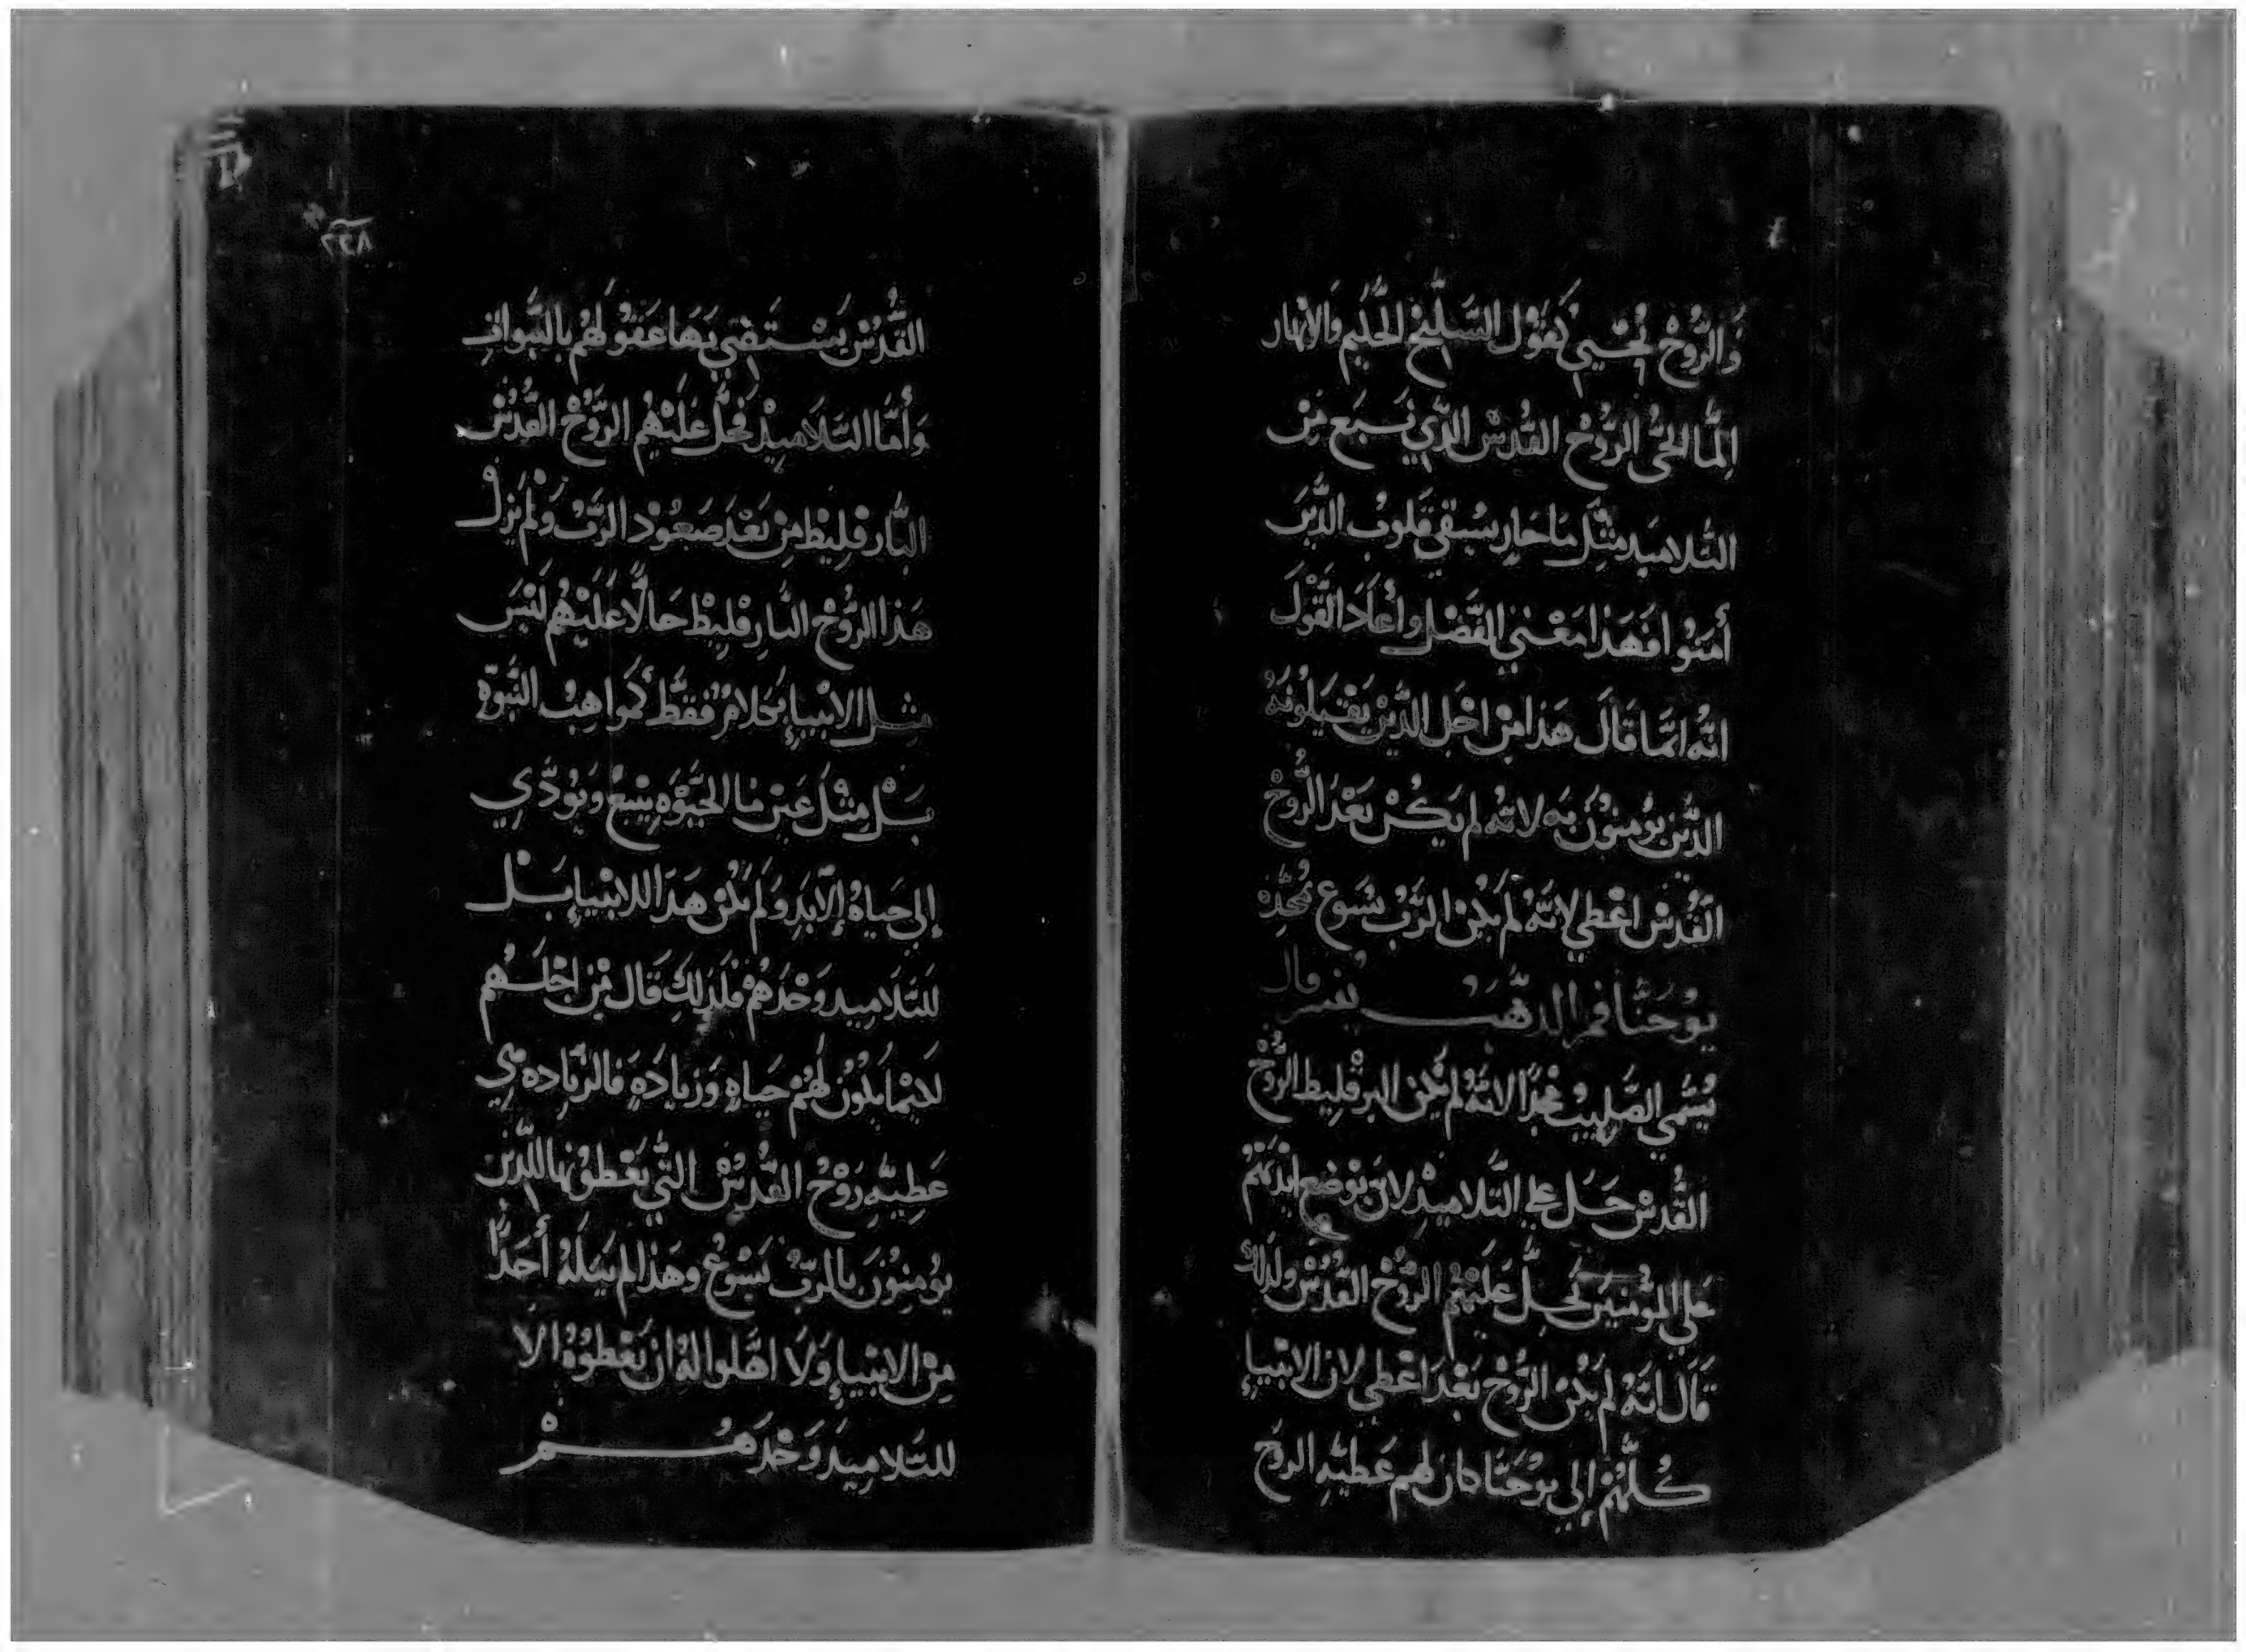 وَالرُّوحْ تُحْيي كَقَوْل السَّلِيخ الحَكيم وَالانهار
اِلمَا الحَيُّ الرُّوْحُ القُدسْ الذَّي نَبَع مِن
التلاميد مثل ما جَارِ سُقي قلوبُ الذَّين
أمنوا فهَذا مَعْني الفَضْل وأعَادَ القَوْل
انهُ انما قَالَ هَذا مِن اجْل الذَّينْ يَقبَلونَهُ
الذَّين يُومنوُنَ بهِ لانهُ لم يَكُنْ بَعْدَ الرُّوحْ
القُدسْ اعْطي لانَّهُ لَم يَكُنْ الرَّبُ يسَوع مُجِّدَ
يوُحَنا فم الدَّهَب يُفسر قال
يُسَمي الصَّليبُ مَجْدًا لانهُ لم يكن البرقليط الرُّوحْ
القُدسْ حَل علي التَلاميدْ لان بوْضع ايْديَهُمْ
عَلي المؤمنينَ تَحِلُّ عَلَيْهُم الرُّوحْ القُدُسْ ولدلك
قَالَ انهُ لم يكُنْ الرُّوحْ بَعْدَ اعْطي لان الانْبيا
كُلَّهُمْ إلي يوْحَنَّا كان لهم عَطيَّهِ الروحْ
٢٢٨
القُدُسْ يَسْتَقي بهَا عَقوُلهُم بالنبوات
وَأمَّا التَلاَميدْ فَحَلَّ عَلَيْهُم الرَّوُحْ القُدُسْ
البَّارقليط مِنْ بَعْدَ صَعُوُدْ الرَّبْ وَلَمْ يَزَلْ
هَذا الرَّوُحْ البارقليط حَالاً عَلَيْهُم لَيْسَ
مثل الانبيا بَحلامُ فقَطْ كموَاهبْ النبوَّهِ
بَلْ مِثْل عَين مَا الحَيَوْهِ ينبعُ وَيوُدّي
إلي حَياهْ إلابَد وَلَم يَكُن هَذا للانبيا بَل
للتلاميد وَحْدَهُمْ فلدلِك قَالَ مِنْ اجْلهُم
لكيْمَا يكوُن لَهُمْ حَياهٍ وَزيادَهٍ فالزَّياده هي
عَطيَّهِ رَوْحُ القُدُسْ التَّي يَعْطونهَا للذينْ
يوُمنوُنَ بالرَّبْ يَسُوعْ وهَذا لم يَنلهُ أحَدًا
مِنْ الانبيا وَلاَ اهَّلوا لهُ انْ يَعْطوُهُ الا
للتَلاميد وَحْدَهُمْ